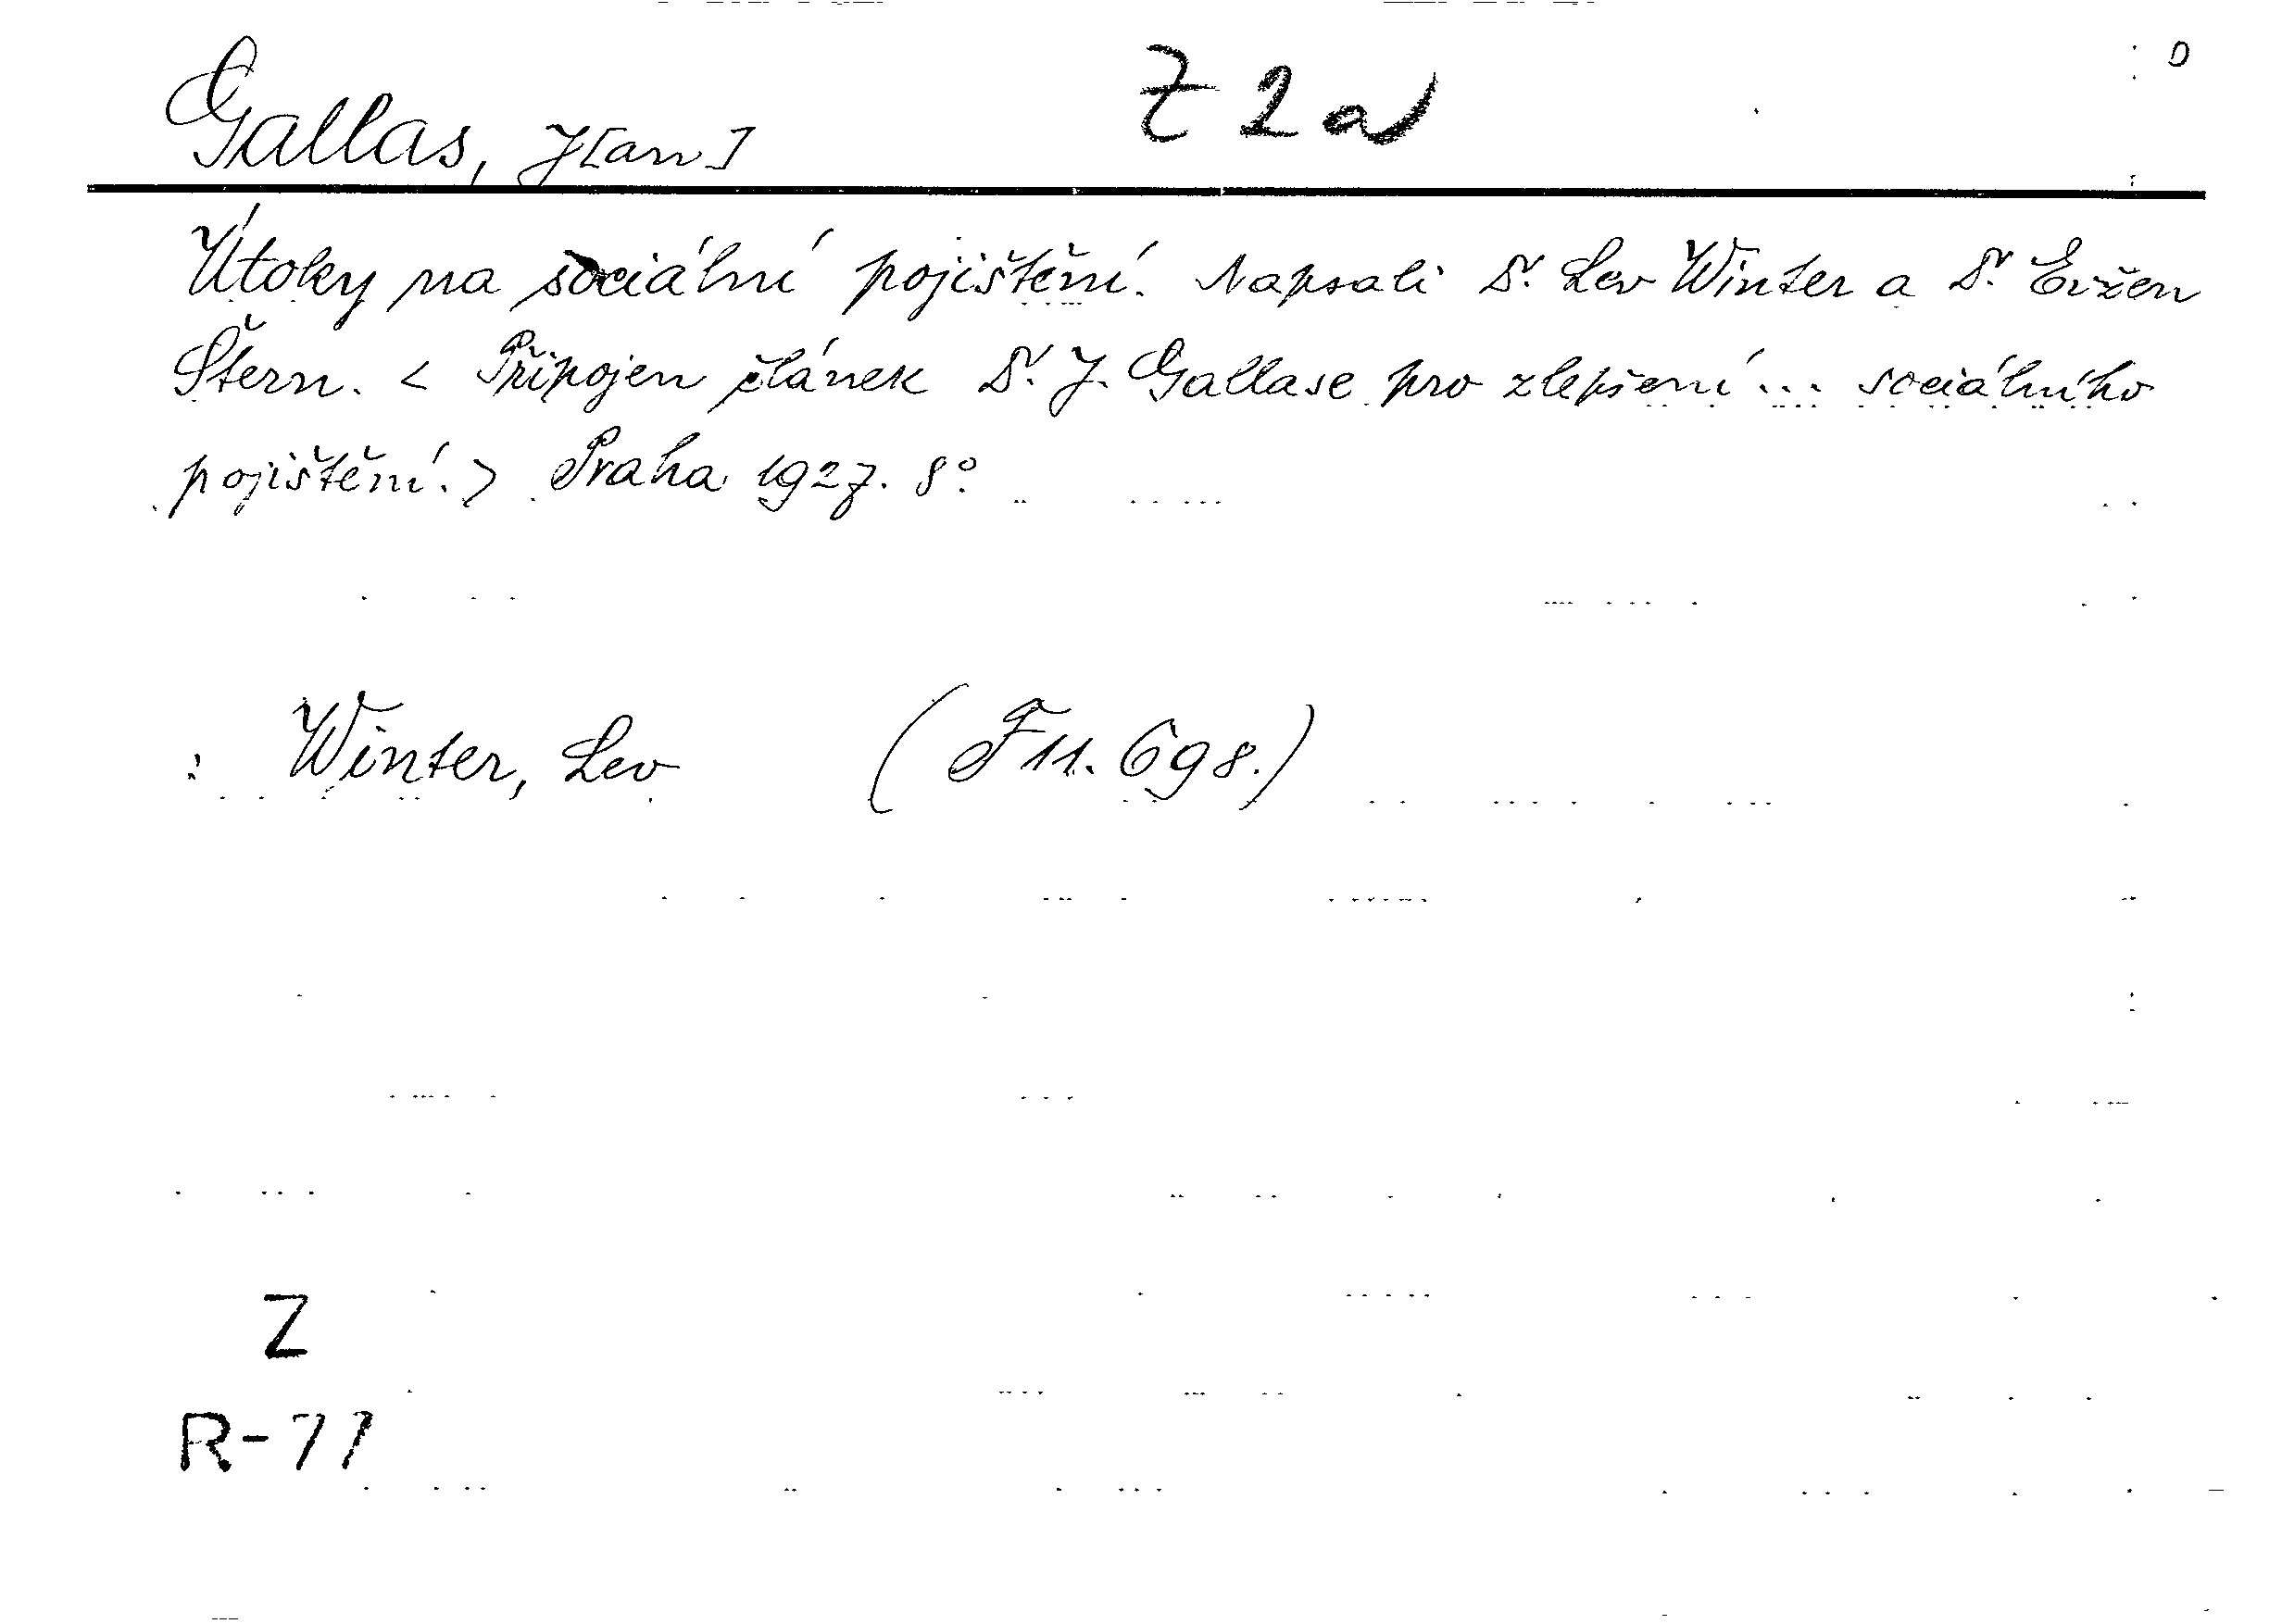 Gallas, J[an] Z 2a
Útoky na sociální pojištění. Napsali Dr. Lev Winter a Dr. Evžen
Štern. < Připojen článek Dr. J. Gallase pro zlepšení ... sociálního
pojištění. > Praha 1927. 8°
: Winter, Lev (F 11. 698.)
Z
R-77